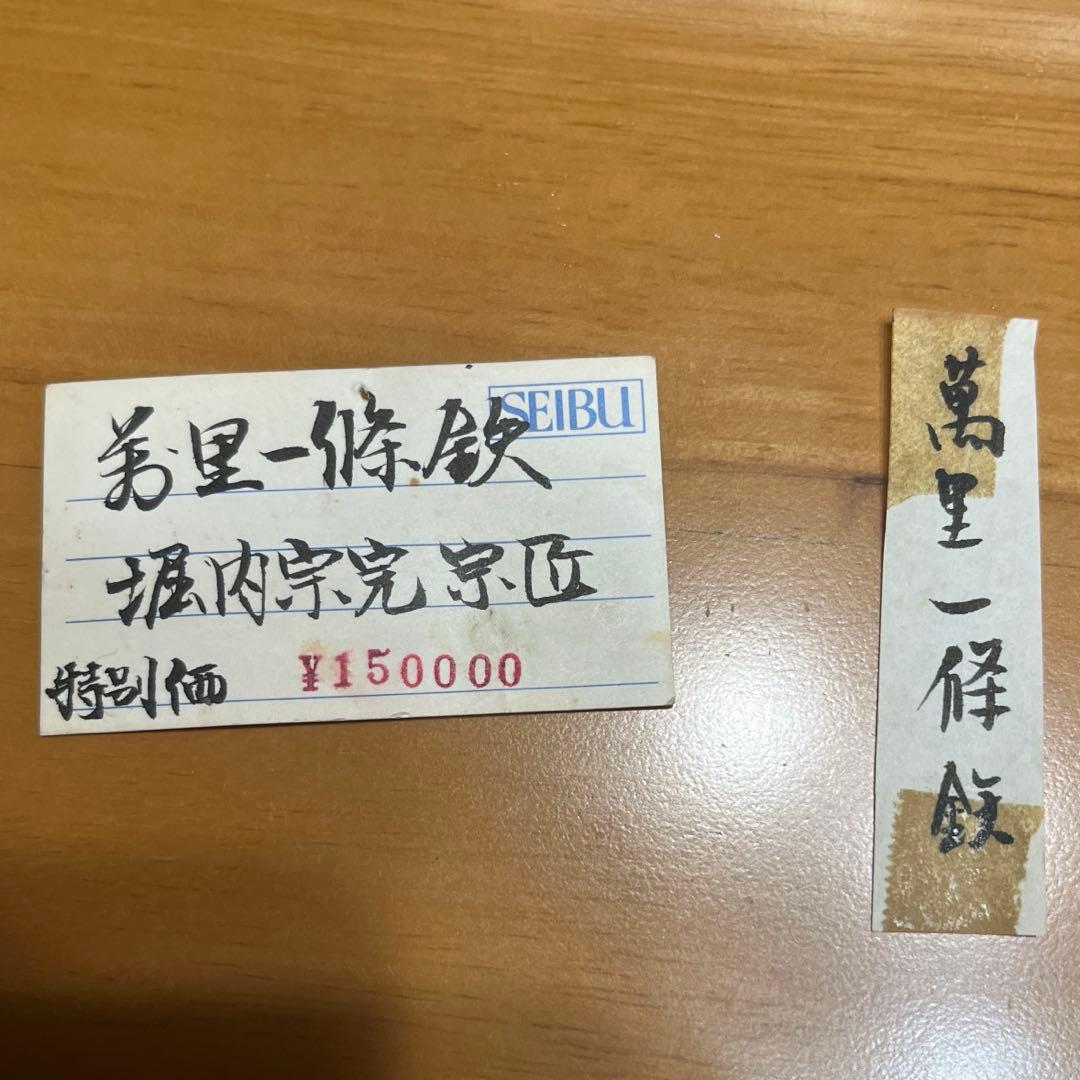 SEIBU
萬里一條鉄
堀内宗完 宗匠
特別価 ¥150000
萬里一條鉄